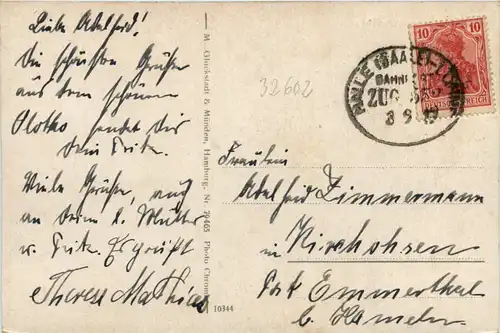 Liebe Adelheid!
Die schönsten Grüße
aus dem schönen
sendet dir
dein Fritz.
Viele Grüße, auch
an deine l. Mutter
u. Fritz. Es grüßt
Therese Mathias
M. Glückstadt & Münden, Hamburg. Photo Chromo
10344
32602
HALLE (SAALE)
BAHNPOST
ZUG
10
10
DEUTSCHES REICH
Fräulein
Adelheid Zimmermann
in Kirchohsen
Post Emmerthal
b. Hameln